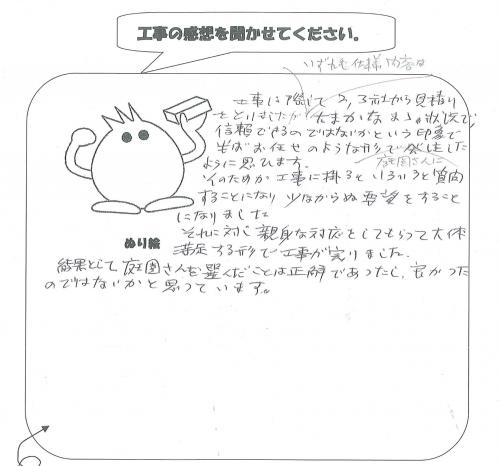 工事の感想を聞かせてください。
いずれも仕様内容は
工事に際して2,3社から見積り
をとりましたが 大まかなままの状況で
信頼できるのではないかという印象で
半ばお任せのような形で発注した
ように思ひます。
庭園さんに
そのためか工事に掛るといろいろと質問
することになり 少なからぬ要望をすること
になりました
それに対し親身な対応をしてもらって大体
満足する形で工事が完りました.
ぬり絵
結果として庭園さんを選んだことは正解であったし、良かった
のではないかと思っています。